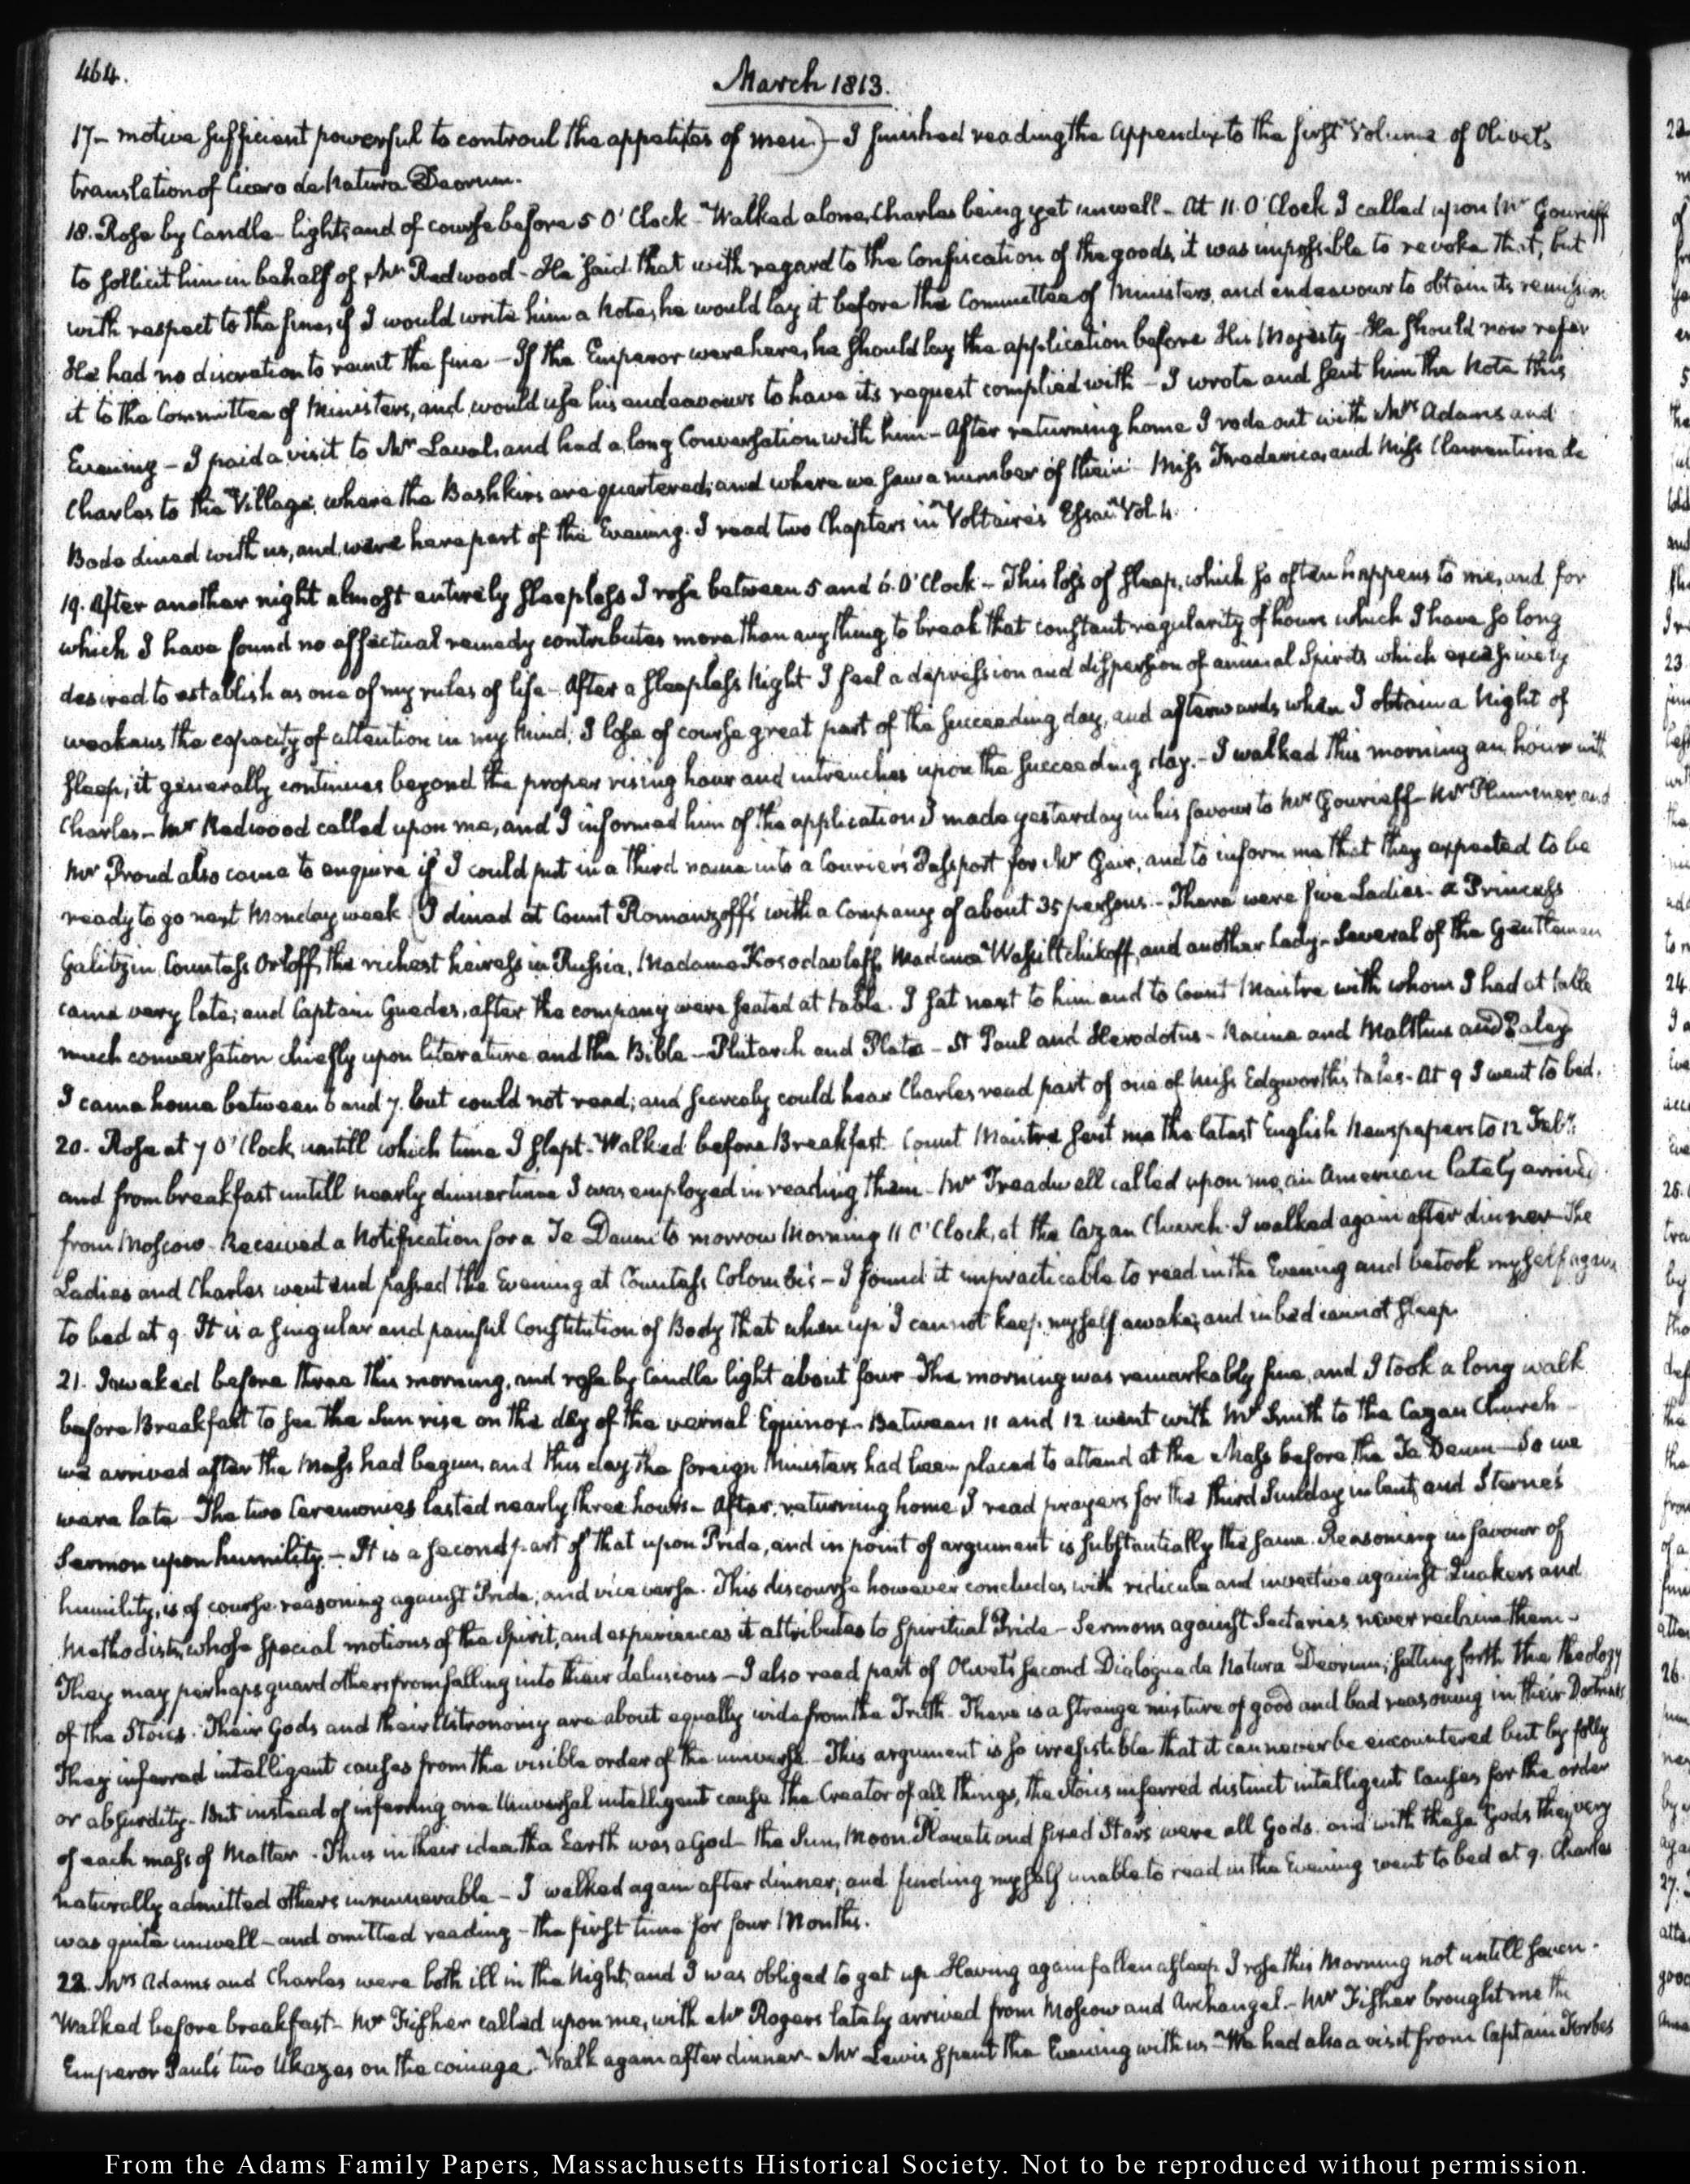 464.
March 1813.
17- motive sufficient powerful to controul the appetites of men.) - I finished reading the Appendix to the first Volume of Olivet's
translation of Cicero de Natura Deorum.
18. Rose by Candle-light, and of course before 5 O'Clock - Walked alone, Charles being yet unwell - At 11. O'Clock I called upon Mr Gourieff
to sollicit him in behalf of Mr Redwood - He said that with regard to the Confiscation of the goods, it was impossible to revoke that, but
with respect to the fine, if I would write him a Note, he would lay it before the Committee of Ministers, and endeavour to obtain its remission
He had no discretion to remit the fine - If the Emperor were here, he should lay the application before His Majesty - He should now refer
it to the Committee of Ministers, and would use his endeavours to have its request complied with - I wrote and sent him the Note this
Evening - I paid a visit to Mr Laval, and had a long Conversation with him - After returning home I rode out with Mrs Adams and
Charles to the Village, where the Bashkirs are quartered; and where we saw a number of them. Miss Frederica, and Miss Clementina de
Bode dined with us, and were here part of the Evening. I read two Chapters in Voltaire's Essai Vol. 4.
19. After another night almost entirely sleepless I rose between 5 and 6. O'Clock - This loss of sleep, which so often happens to me, and for
which I have found no effectual remedy contributes more than any thing to break that constant regularity of hours which I have so long
desired to establish as one of my rules of life - After a sleepless Night I feel a depression and dispersion of animal Spirits which excessively
weakens the capacity of attention in my Mind; I lose of course great part of the succeeding day, and afterwards when I obtain a Night of
sleep, it generally continues beyond the proper rising hour and intrenches upon the succeeding day. - I walked this morning an hour with
Charles - Mr Redwood called upon me, and I informed him of the application I made yesterday in his favour to Mr Gourieff - Mr Plummer and
Mr Proud also came to enquire if I could put in a third name into a Courier's Passport for Mr Gair, and to inform me that they expected to be
ready to go next Monday week. (I dined at Count Romanzoff's with a Company of about 35 persons. - There were five Ladies - a Princess
Galitzin, Countess Orloff, the richest heiress in Russia, Madame Kosodavleff, Madame Wasiltchikoff, and another Lady - Several of the Gentlemen
came very late; and Captain Guedes, after the company were seated at table. I sat next to him and to Count Maistre with whom I had at table
much conversation chiefly upon literature and the Bible - Plutarch and Plato - St Paul and Herodotus - Racine and Malthus and Paley
I came home between 6 and 7. but could not read; and scarcely could hear Charles read part of one of Miss Edgworth's tales - At 9 I went to bed.
20. Rose at 7 O'Clock, untill which time I slept - Walked before Breakfast. Count Maistre sent me the latest English Newspapers to 12 Feby
and from breakfast untill nearly dinner time I was employed in reading them - Mr Treadwell called upon me, an American lately arrived
from Moscow - Received a Notification for a Te Deum to morrow Morning 11 O'Clock, at the Cazan Church. I walked again after dinner - The
Ladies and Charles went and passed the Evening at Countess Colombi's - I found it impracticable to read in the Evening and betook myself again
to bed at 9. It is a singular and painful Constitution of Body that when up I cannot keep myself awake, and in bed cannot sleep.
21. I waked before three this morning, and rose by Candle light about four - The morning was remarkably fine, and I took a long walk
before Breakfast to see the Sun rise on the day of the vernal Equinox - Between 11 and 12 went with Mr Smith to the Cazan Church
we arrived after the Mass had begun, and this day the foreign Ministers had been placed to attend at the Mass before the Te Deum - So we
were late - The two Ceremonies lasted nearly three hours - After returning home I read prayers for the third Sunday in lent, and Sterne's
Sermon upon humility - It is a second part of that upon Pride, and in point of argument is substantially the same. Reasoning in favour of
humility, is of course reasoning against Pride; and vice versa. This discourse however concludes with ridicule and invective against Quakers and
Methodists, whose special motions of the Spirit, and experiences it attributes to Spiritual Pride - Sermons against Sectaries never reclaim them -
They may perhaps guard others from falling into their delusions - I also read part of Olivet's second Dialogue de Natura Deorum, setting forth the theology
of the Stoics. Their Gods and their Astronomy are about equally wide from the Truth - There is a strange mixture of good and bad reasoning in their Doctrines
They inferred intelligent causes from the visible order of the universe - This argument is so irresistible that it can never be encountered but by folly
or absurdity - But instead of inferring one Universal intelligent cause the Creator of all things, the Stoics inferred distinct intelligent causes for the order
of each mass of Matter - Thus in their idea the Earth was a God - the Sun, Moon, Planets and fixed Stars were all Gods. and with these Gods they very
naturally admitted others innumerable - I walked again after dinner; and finding myself unable to read in the Evening went to bed at 9. Charles
was quite unwell - and omitted reading - the first time for four Months.
22. Mrs Adams and Charles were both ill in the Night, and I was obliged to get up - Having again fallen asleep I rose this Morning not untill seven -
Walked before breakfast - Mr Fisher called upon me, with Mr Rogers lately arrived from Moscow and Archangel. - Mr Fisher brought me the
Emperor Paul's two Ukazes on the coinage. Walk again after dinner - Mr Lewis spent the Evening with us - We had also a visit from Captain Forbes
From the Adams Family Papers, Massachusetts Historical Society. Not to be reproduced without permission.